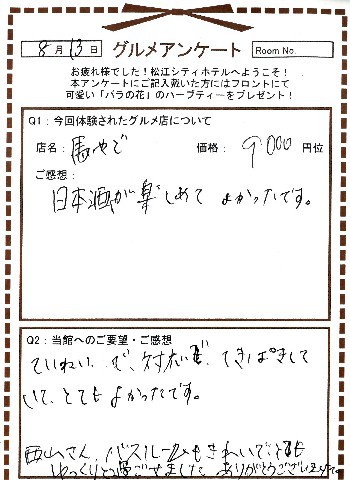 8月13日 グルメアンケート Room No.
お疲れ様でした！松江シティホテルへようこそ！
本アンケートにご記入戴いた方にはフロントにて
可愛い「バラの花」のハーブティーをプレゼント！
Q1：今回体験されたグルメ店について
店名：馬やど 価格：9000円位
ご感想：
日本酒が楽しめて よかったです。
Q2：当館へのご要望・ご感想
ていねい で、対応も、てきぱきして
いて、とても よかったです。
西山さん、バスルームもきれいで、とても
ゆっくりと過ごせました ありがとうございました。